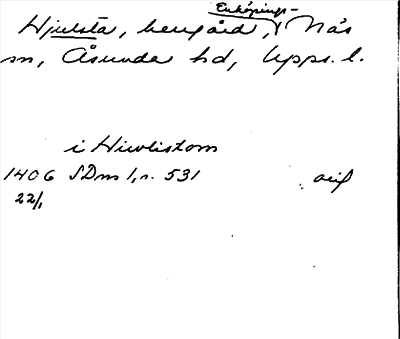 Enköpings-
Hjulsta, herrgård, Näs
sn, Åsunda hd, Upps. l.
i Hiwlistom
1406 SDns 1, s. 531
22/1